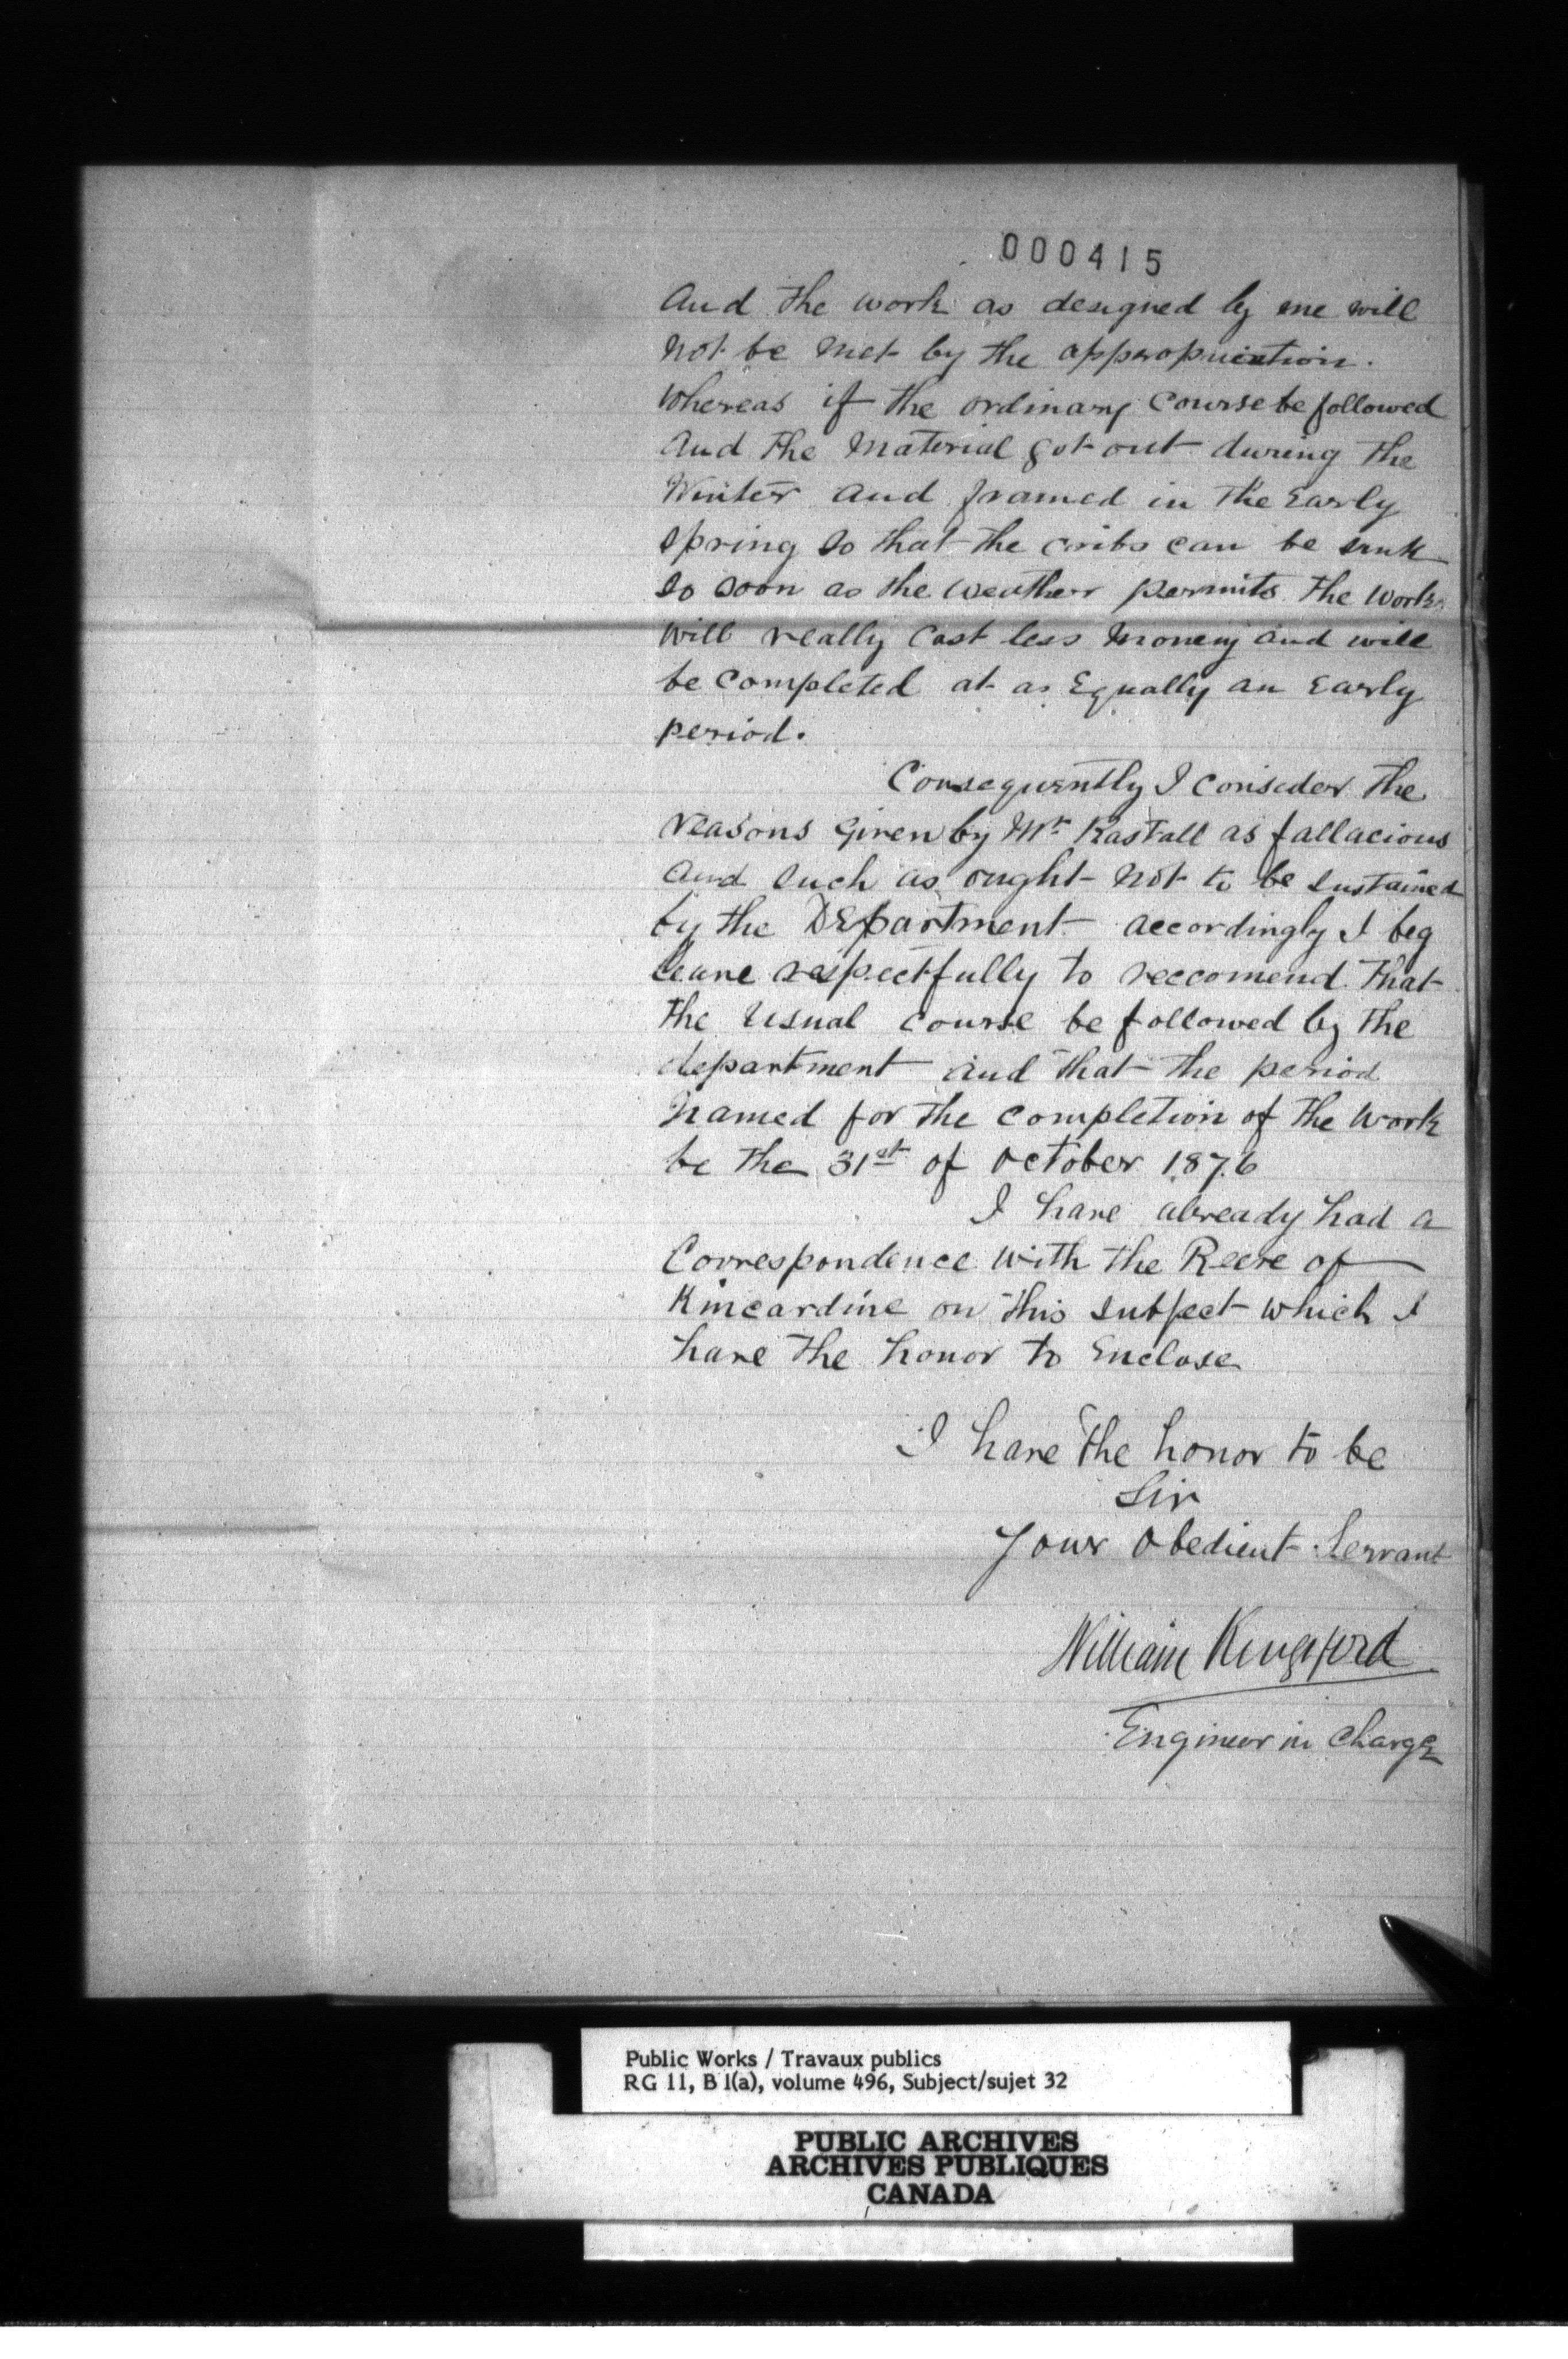 000415
And the work as designed by me will
not be met by the appropriation.
Whereas if the ordinary course be followed
and the material got out during the
Winter and framed in the Early
spring so that the cribs can be sunk
so soon as the weather permits the work
will really cost less money and will
be completed at as Equally an Early
period.
Consequently I consider the
reasons given by Mr Rastall as fallacious
and such as ought not to be sustained
by the DEpartment accordingly I beg
leave respectfully to reccomend that
the usual course be followed by the
department and that the period
named for the completion of the work
be the 31st of October 1876
I have already had a
Correspondence with the Reeve of
Kincardine on this subject which I
have the honor to Enclose
I have the honor to be
Sir
Your Obedient Servant
William Kingsford
Engineer in Charge
Public Works / Travaux publics
RG 11, B 1(a), volume 496, Subject/sujet 32
PUBLIC ARCHIVES
ARCHIVES PUBLIQUES
CANADA